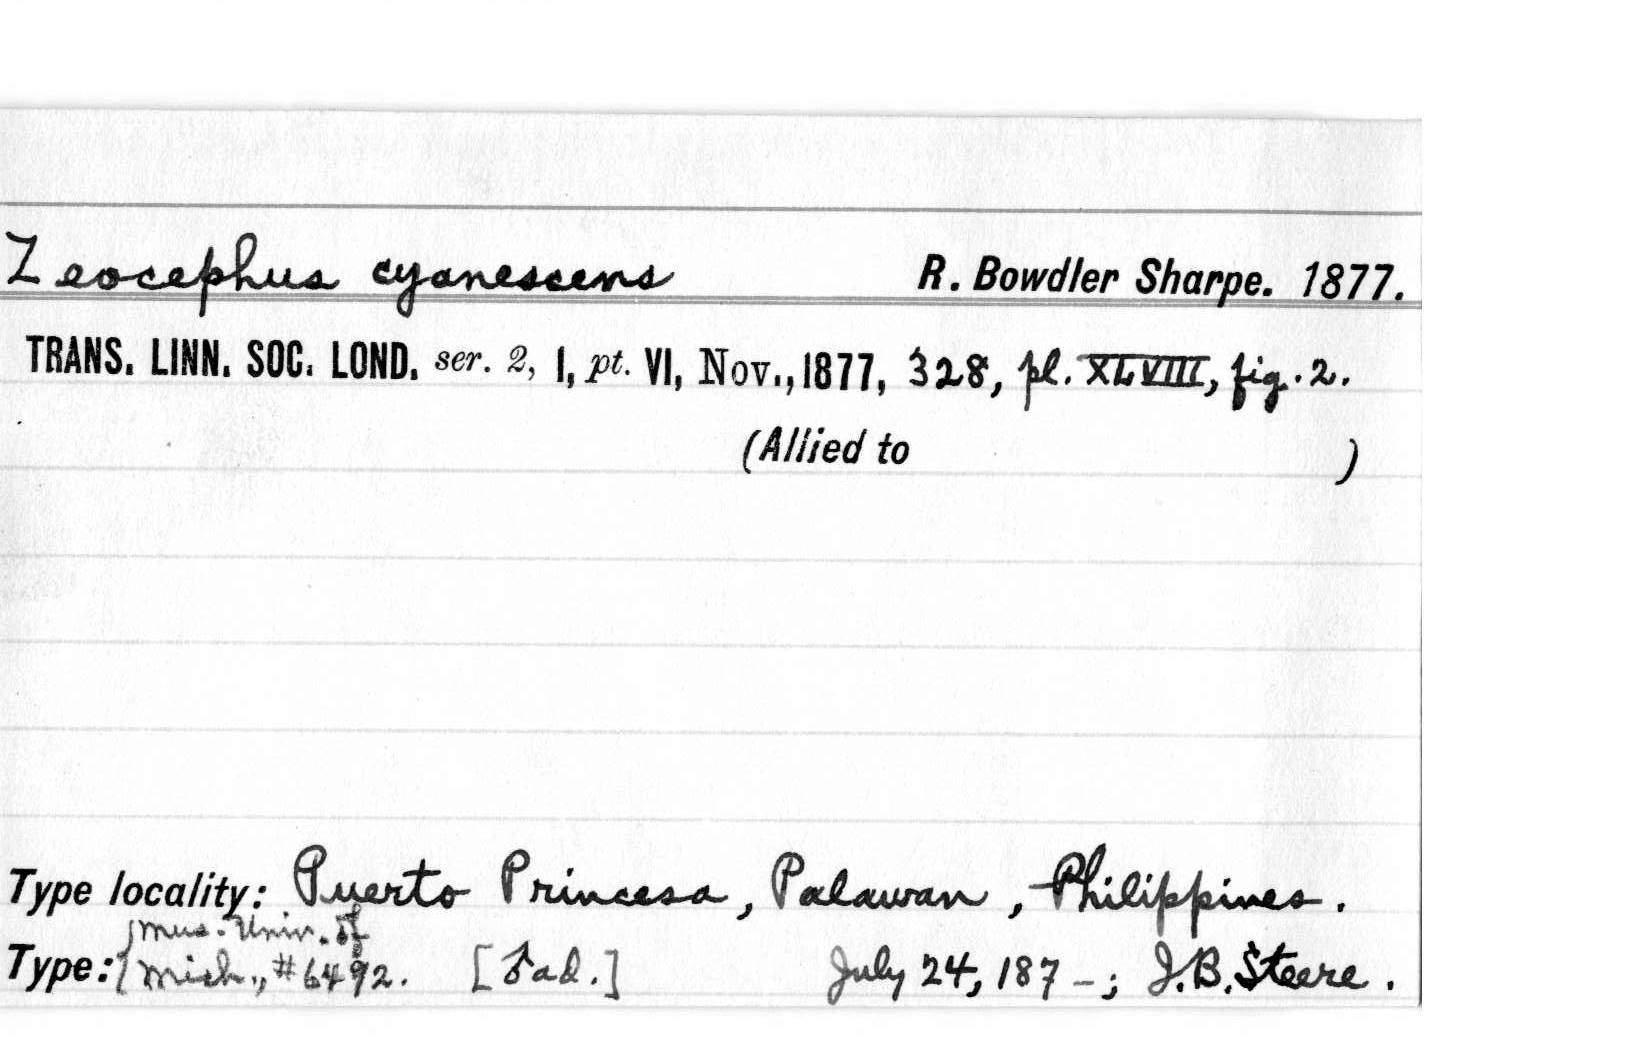 Zeocephus cyanescens R. Bowdler Sharpe. 1877.
TRANS. LINN. SOC. LOND. ser. 2, I, pt. VI, Nov., 1877, 328, pl. XLVIII, fig. 2.
(Allied to )
Type locality: Puerto Princesa, Palawan, Philippines.
Mus. Univ. of
Type: { Mich., #6492. [♂ ad.] July 24, 187–; J.B. Steere.